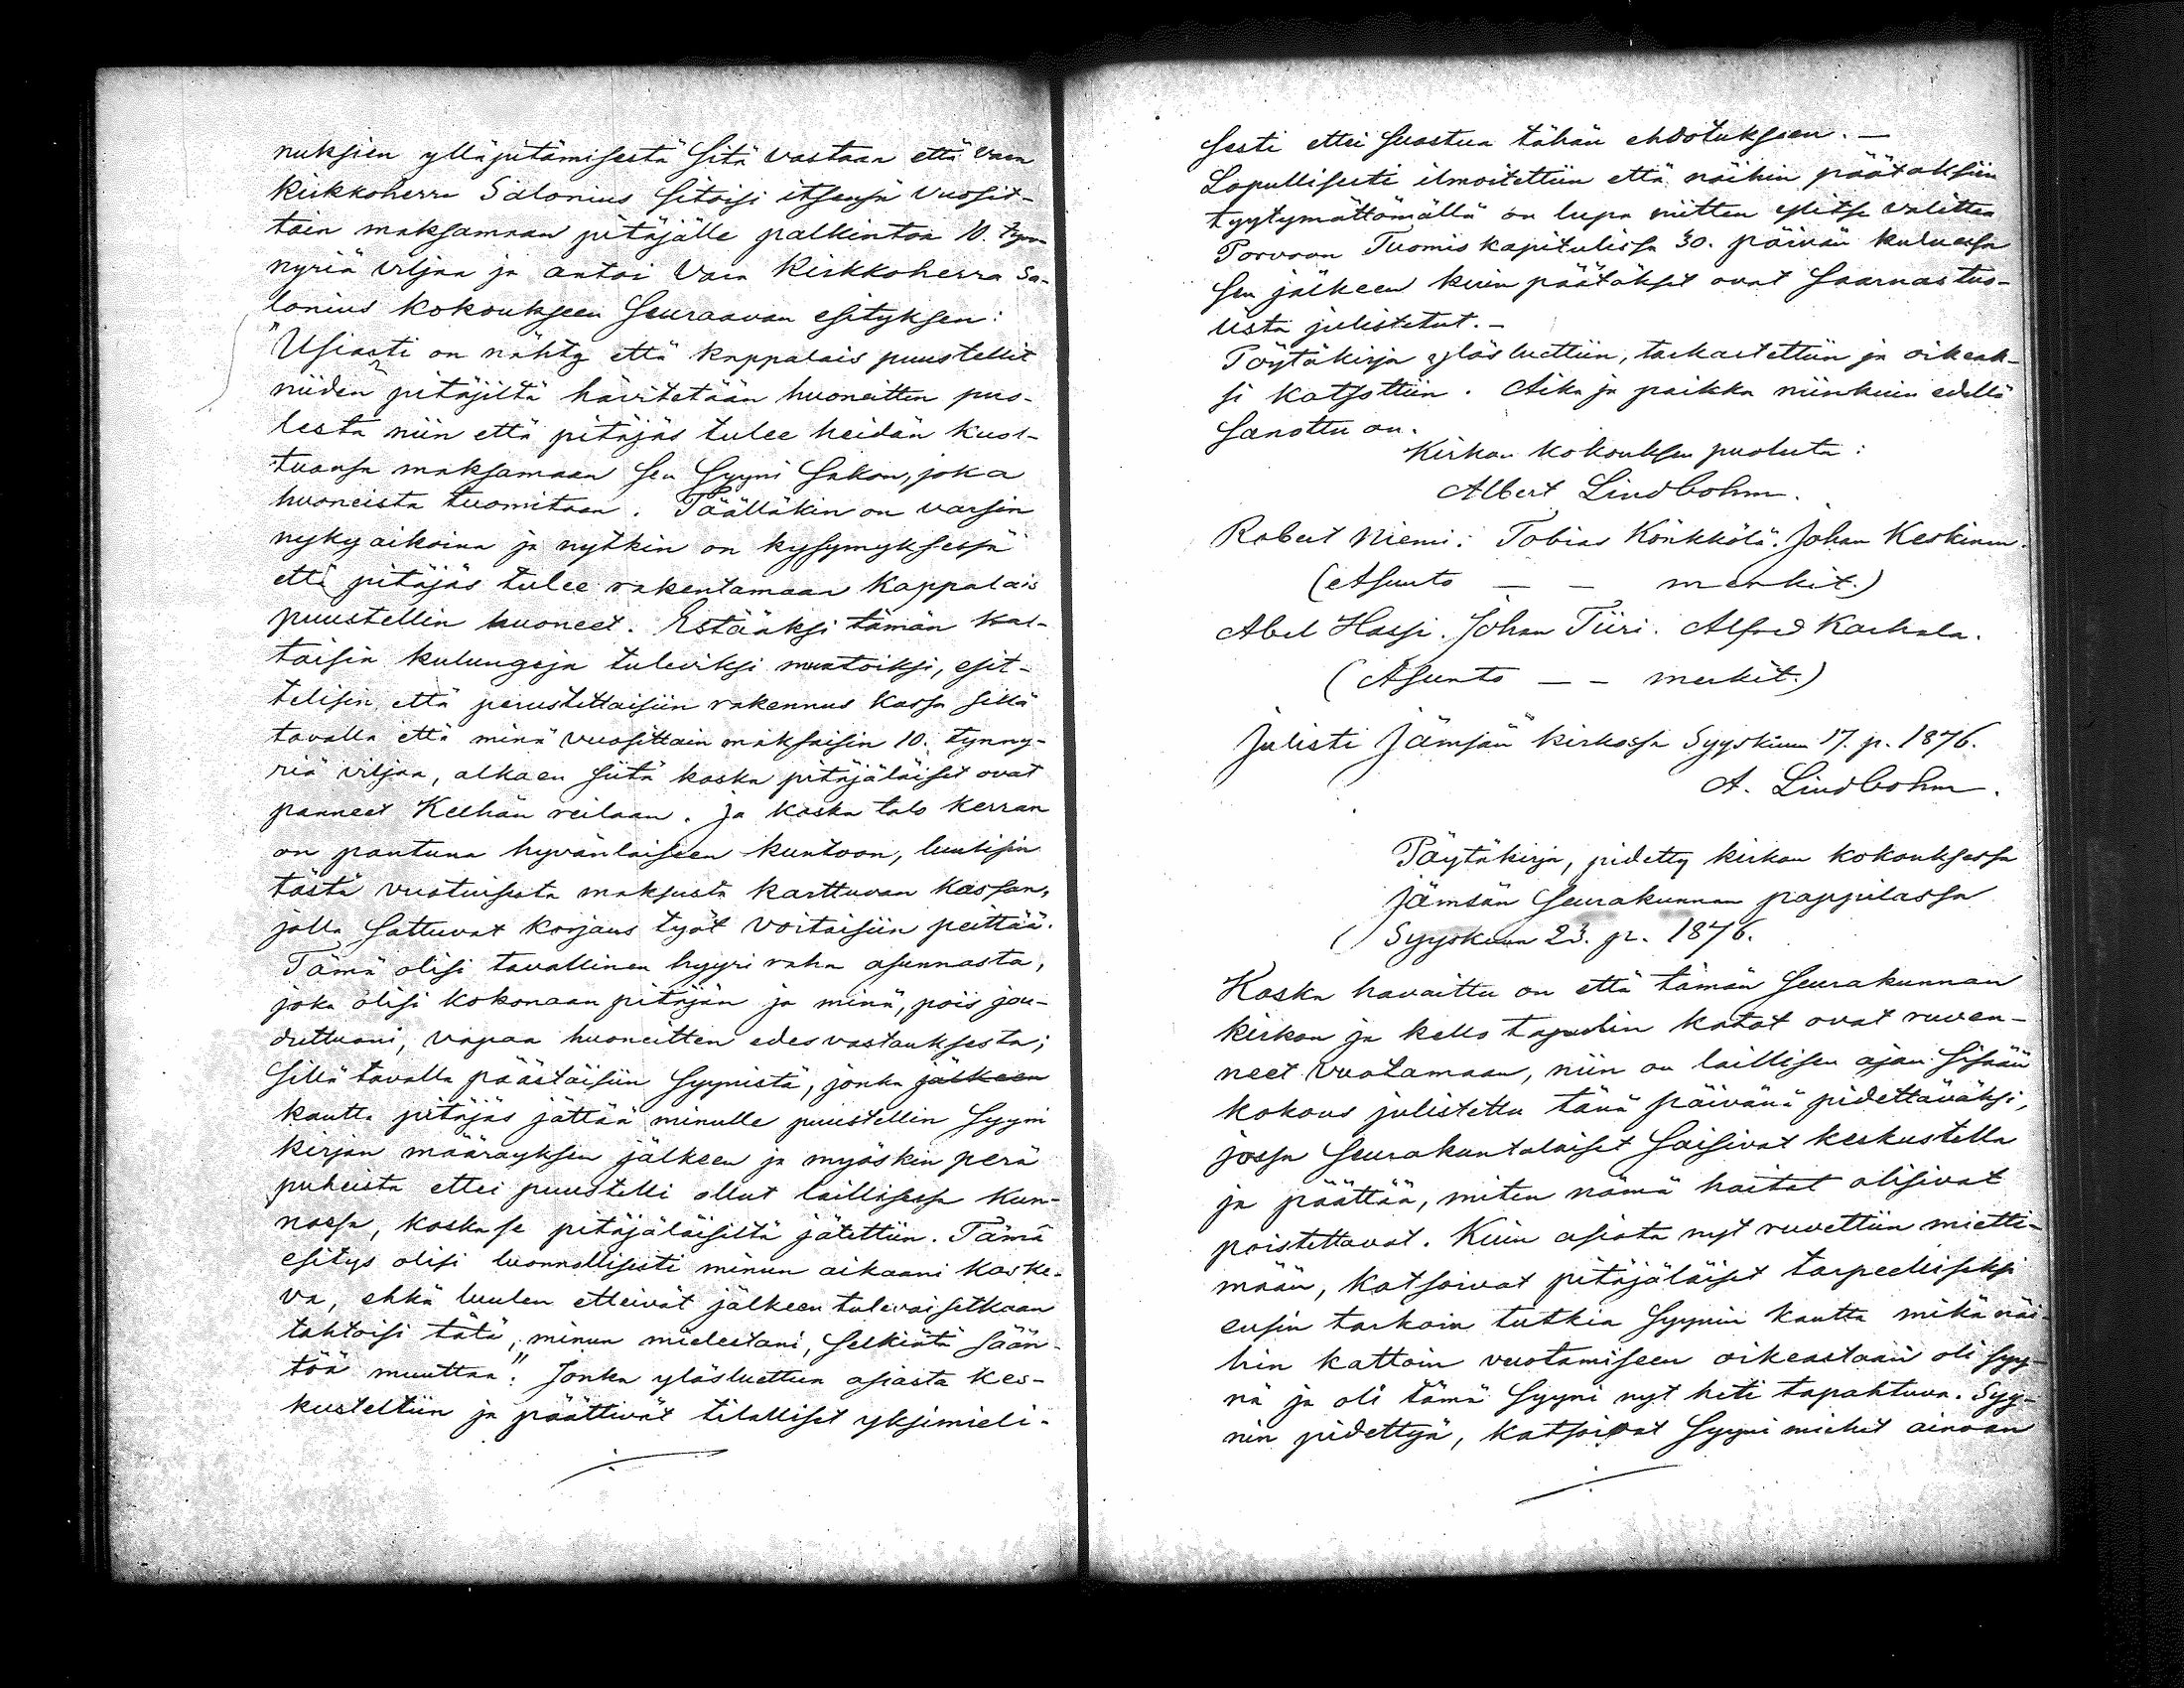 nuksien ylläpitämisestä sitä vastaan että vara
kirkkoherra Salonius sitoisi itsensä vuosit-
tain maksamaan pitäjälle palkintoa 10. tyn-
nyriä viljaa ja antoi Vara Kirkkoherra Sa-
lonius kokoukseen seuraavan esityksen:
"Usiasti on nähty että kappalais puustellit
niiden pitäjiltä hävitetään huoneitten puo-
lesta niin että pitäjäs tulee heidän kuol-
tuansa maksamaan sen syyni sakon, joka
huoneista tuomitaan. Täälläkin on varsin
nyky aikoina ja nytkin on kysymyksessä
että pitäjäs tulee rakentamaan Kappalais
puustellin huoneet. Estääksi tämän kal-
taisia kulungeja tuleviksi muutoiksi, esit-
telisin, että perustettaisiin rakennus kassa sillä
tavalla että minä vuosittain maksaisin 10. tynny-
riä viljaa, alkaen siitä koska pitäjäläiset ovat
panneet Keehän reilaan. Ja koska talo kerran
on pantuna hyvänlaiseen kuntoon, luulisin
tästä vuotuisesta maksusta karttuvan kassan,
jolla sattuvat korjaus työt voitaisiin peittää.
Tämä olisi tavallinen hyyri raha asunnosta,
joka olisi kokonaan pitäjän ja minä, pois jou-
duttuani, vapaa huoneitten edesvastauksesta;
sillä tavalla päästäisiin syynistä, jonka jälkeen
kautta pitäjäs jättää minulle puustellin syyni
kirjan määräyksen jälkeen ja myöskin perä
puheista ettei puustelli ollut laillisessa kun-
nossa, koska se pitäjäläisiltä jätettiin. Tämä
esitys olisi luonnollisesti minun aikaani koske-
va, ehkä luulen etteivät jälkeen tulevaisetkaan
tahtoisi tätä, minun mielestäni, selkiätä sään-
töä muuttaa". Jonka ylösluettua asiasta kes-
kusteltiin ja päättivät tilalliset yksimieli-
sesti ettei suostua tähän ehdotukseen. —
Lopullisesti ilmoitettiin että näihin päätöksiin
tyytymättömällä on lupa niitten ylitse valittaa
Porvoon Tuomiokapitulissa 30. päivän kuluessa
sen jälkeen kuin päätökset ovat saarnastuo-
lista julistetut. —
Pöytäkirja ylösluettiin, tarkastettiin ja oikeak-
si katsottiin. Aika ja paikka niinkuin edellä
sanottu on.
Kirkon kokouksen puolesta:
Albert Lindbohm.
Robert Niemi. Tobias Könkkölä. Johan Keskinen.
(Asunto — — merkit.)
Abel Hassi. Johan Tiiri. Alfred Kaihala.
(Asunto — — merkit.)
Julisti Jämsän kirkossa Syyskuun 17. p. 1876.
A. Lindbohm.
Pöytäkirja, pidetty kirkon kokouksessa
Jämsän seurakunnan pappilassa
Syyskuun 23. p. 1876.
Koska havaittu on että tämän seurakunnan
kirkon ja kello tapulin katot ovat ruven-
neet vuotamaan, niin on laillisen ajan sisään
kokous julistettu tänä päivänä pidettäväksi,
jossa seurakuntalaiset saisivat keskustella
ja päättää, miten nämä haitat olisivat
poistettavat. Kuin asiata nyt ruvettiin mietti-
mään, katsoivat pitäjäläiset tarpeelliseksi
ensin tarkoin tutkia syynin kautta mikä näi-
hin kattoin vuotamiseen oikeastaan oli syy-
nä ja oli tämä syyni nyt heti tapahtuva. Syy-
nin pidettyä, katsoivat syyni miehet ainoan